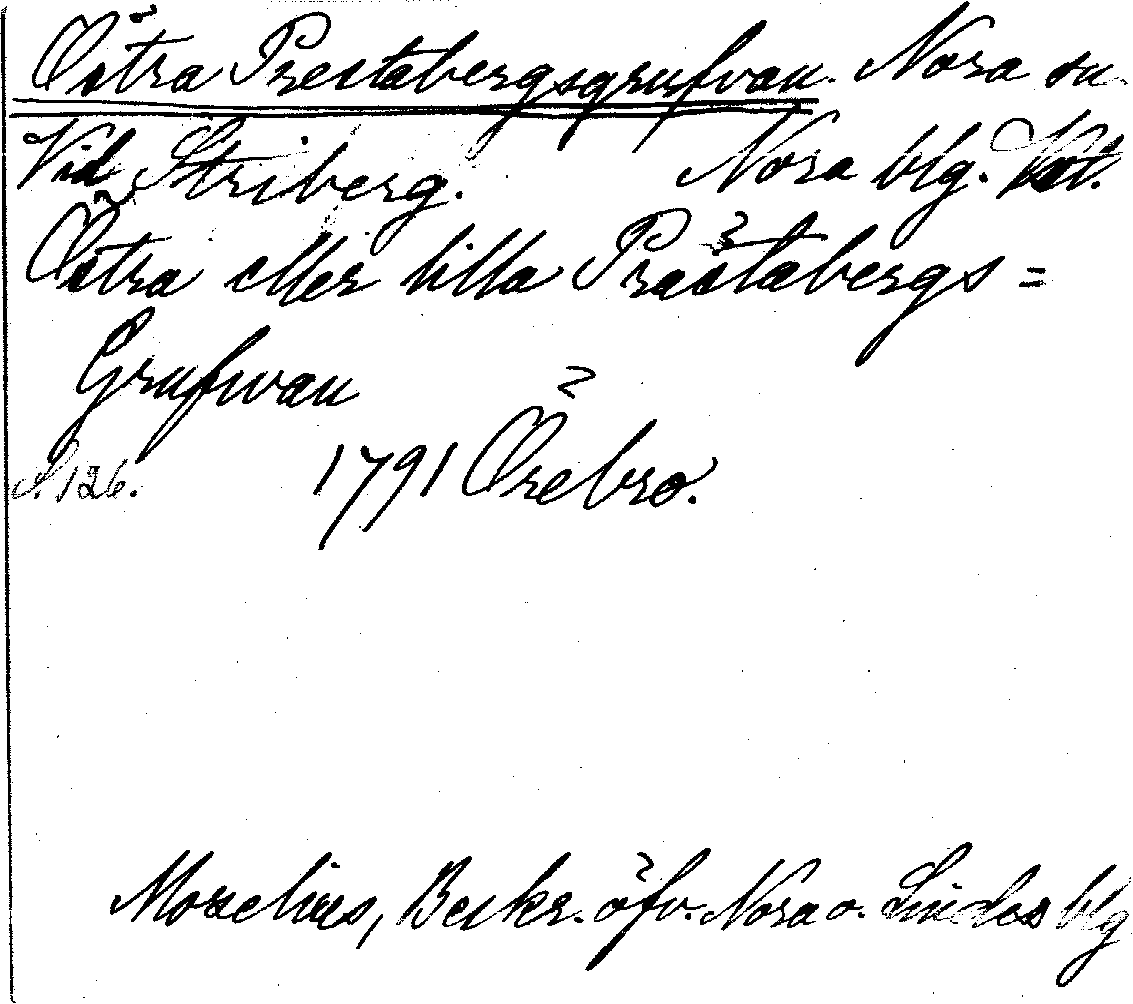 Östra Prestabergsgrufvan. Nora sn.
Vid Striberg. Nora blg. Vstl.
Östra eller lilla Prästabergs=
Grufwan
s. 126. 1791 Örebro.
Morelius, Beskr. öfv. Nora o. Lindes blg